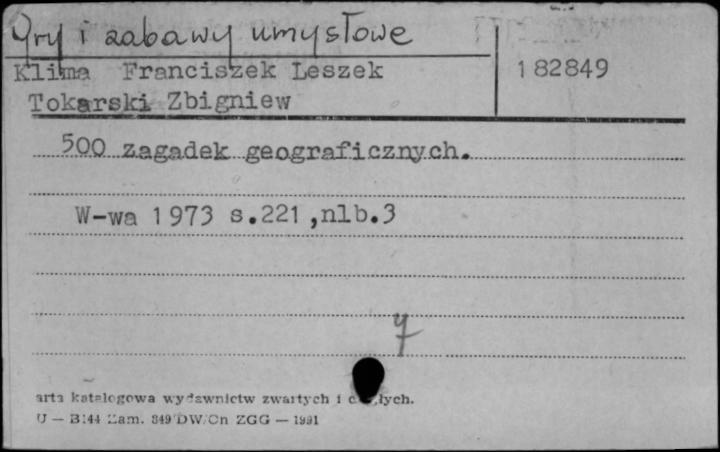 Gry i zabawy umysłowe
Klima Franciszek Leszek 182849
Tokarski Zbigniew
500 zagadek geograficznych.
W-wa 1973 s.221,nlb.3
arta katalogowa wydawnictw zwartych i
U — B144 Zam. 849 DW/Cn ZGG — 1991